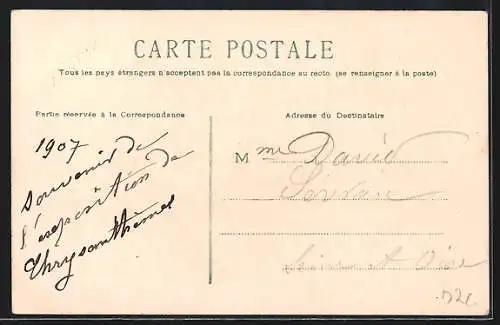 CARTE POSTALE
Tous les pays étrangers n'acceptent pas la correspondance au recto. (se renseigner à la poste)
Partie réservée à la Correspondance
Adresse du Destinataire
1907
Souvenir de
l'exposition de
Chrysanthèmes
Mme David
Seine et Oise